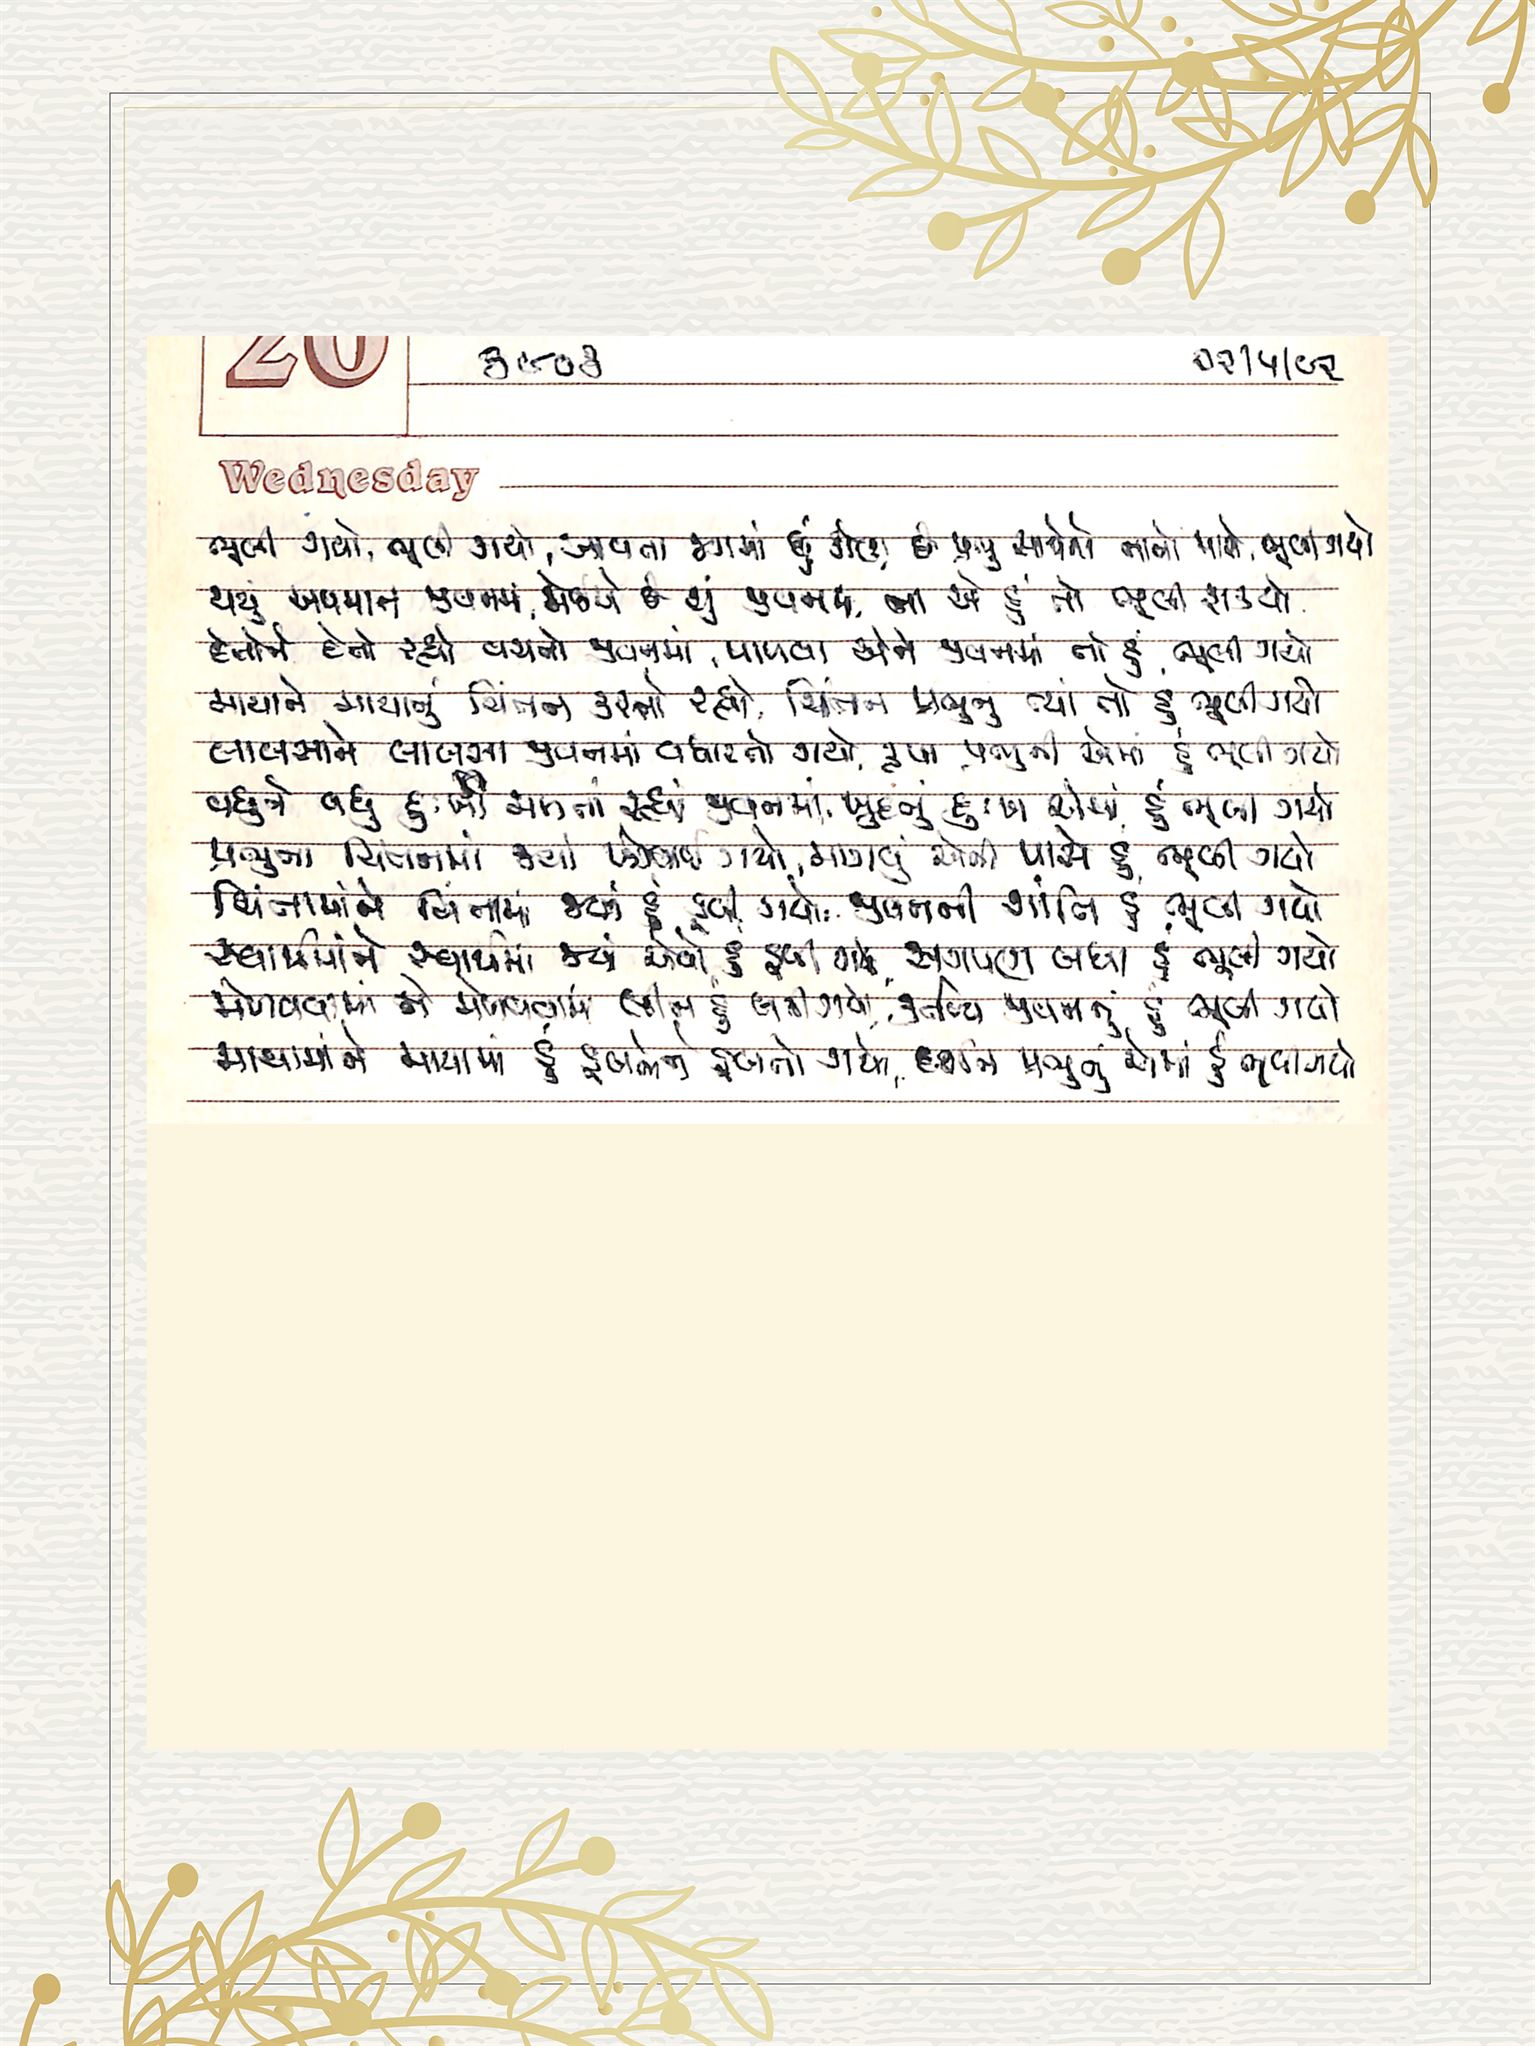 20 ૩૯૦૩ ૨૨/૫/૯૨
Wednesday
ભૂલી ગયો, ભૂલી ગયો, આવતા જગમાં હું પ્રભુ નાતો ભૂલી ગયો
થયું અપમાન જીવનમાં, શું જીવનમાં, ના એ હું તો ભૂલી શક્યો
દેતોને દેતો રહ્યો વચનો જીવનમાં, પાળવા એને જીવનમાં તો હું ભૂલી ગયો
માયાને માયાનું ચિંતન કરતો રહ્યો, ચિંતન પ્રભુનું ત્યાં તો હું ભૂલી ગયો
લાલસાને લાલસા જીવનમાં વધારતો ગયો, કૃપા પ્રભુની એમાં હું ભૂલી ગયો
વધુને વધુ દુઃખી મળતાં રહ્યાં જીવનમાં, ખુદનું દુઃખ એમાં હું ભૂલી ગયો
પ્રભુના ચિંતનમાં જ્યાં ખોવાઈ ગયો, માગવું એની પાસે હું ભૂલી ગયો
ચિંતામાંને ચિંતામાં જ્યાં હું ડૂબી ગયો, જીવનની શાંતિ હું ભૂલી ગયો
સ્વાર્થમાંને સ્વાર્થમાં જ્યાં એવો હું ડૂબી ગયો, સગપણ બધા હું ભૂલી ગયો
મેળવવામાં ને મેળવવામાં લીન હું બની ગયો, કર્તવ્ય જીવનનું હું ભૂલી ગયો
માયામાંને માયામાં હું ડૂબતોને ડૂબતો ગયો, દર્શન પ્રભુનું એમાં હું ભૂલી ગયો